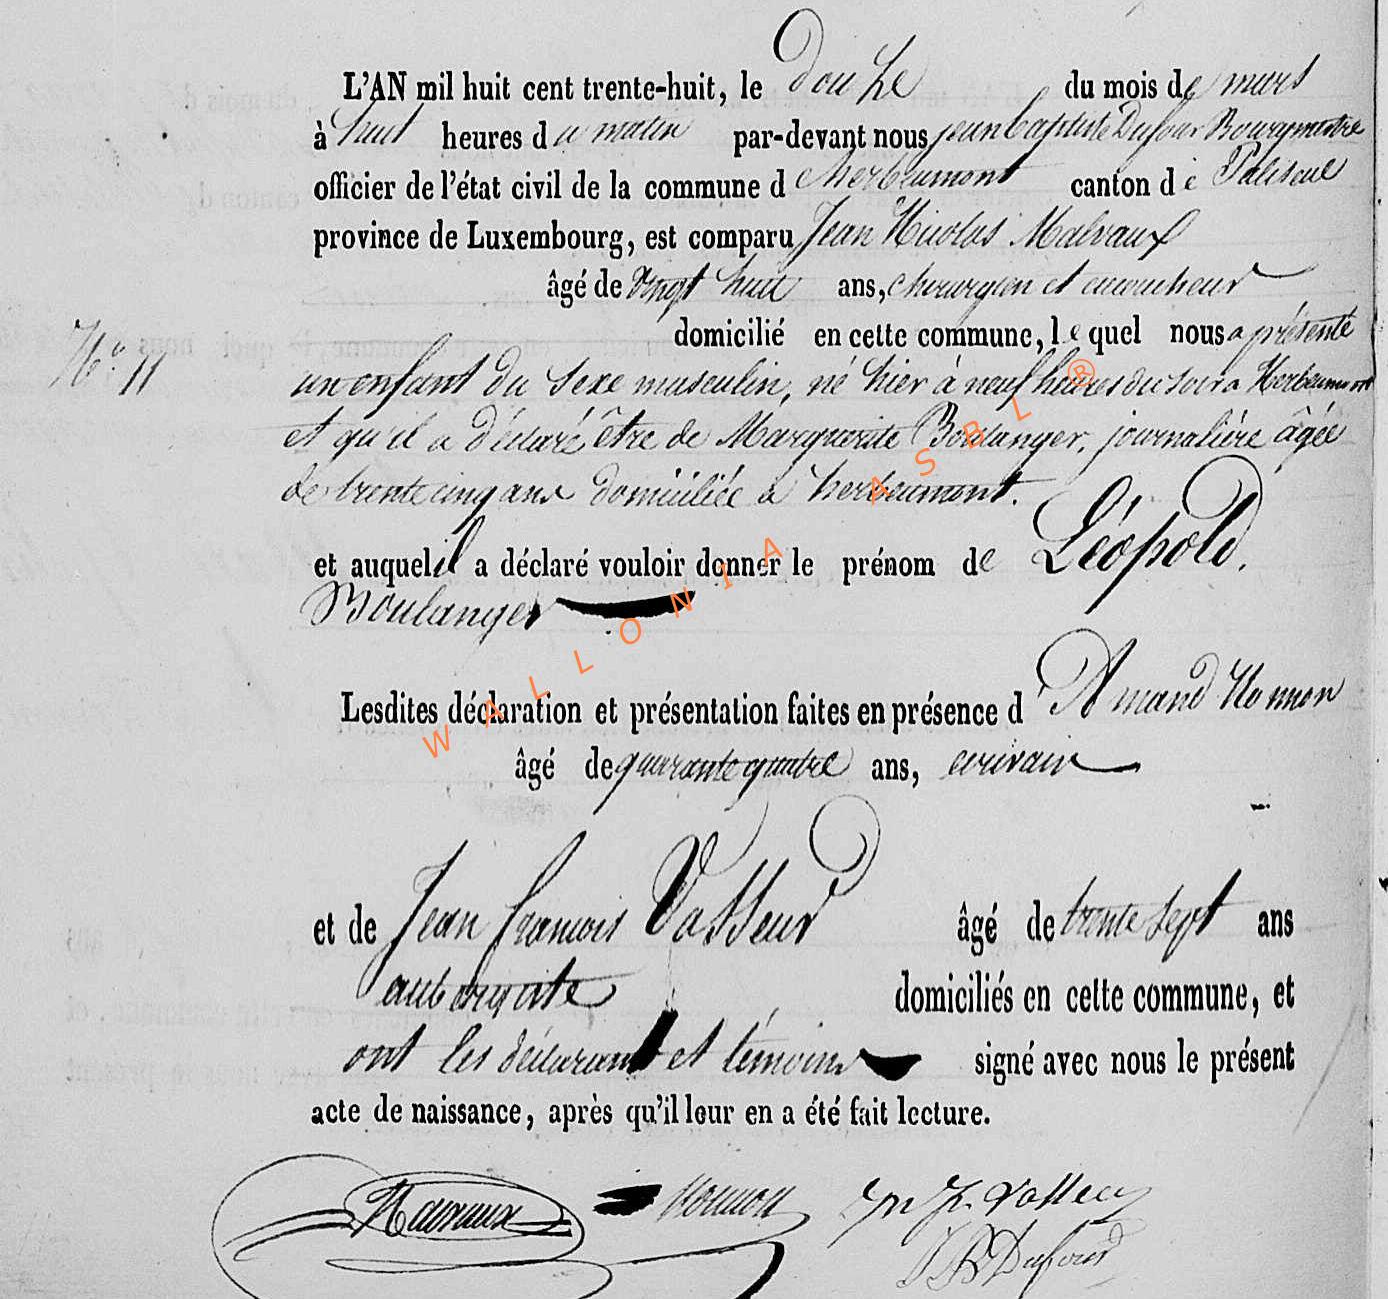 L'AN mil huit cent trente-huit, le douze du mois de mars
à huit heures du matin par-devant nous jean baptiste Dufour Bourgmestre
officier de l'état civil de la commune d'herbeumont canton de Paliseul
province de Luxembourg, est comparu Jean Nicolas Malvaux
âgé de vingt huit ans, chirurgien et accoucheur
domicilié en cette commune, lequel nous a présenté
N.° 11
un enfant du sexe masculin, né hier à neuf heures du soir a Herbeumont
et qu'il a déclaré être de Marguerite Boulanger, journalière âgée
de trente cinq ans domiciliée a herbeumont.
et auquel il a déclaré vouloir donner le prénom de Léopold.
Boulanger
Lesdites déclaration et présentation faites en présence d'Amand
âgé de quarante quatre ans, ecrivain
et de Jean francois Vasseur âgé de trente sept ans
aubergiste domiciliés en cette commune, et
ont les déclarant et témoins signé avec nous le présent
acte de naissance, après qu'il leur en a été fait lecture.
WALLONIA ASBL ®
Malvaux Jn fr. Vasseur
J B Dufour